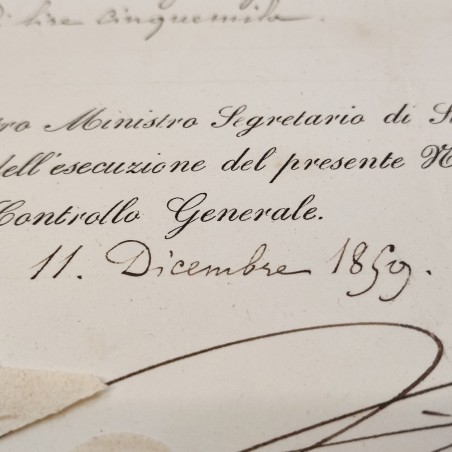 di lire cinquemila.
Ministro Segretario di
dell'esecuzione del presente
Controllo Generale.
11. Dicembre 1859.